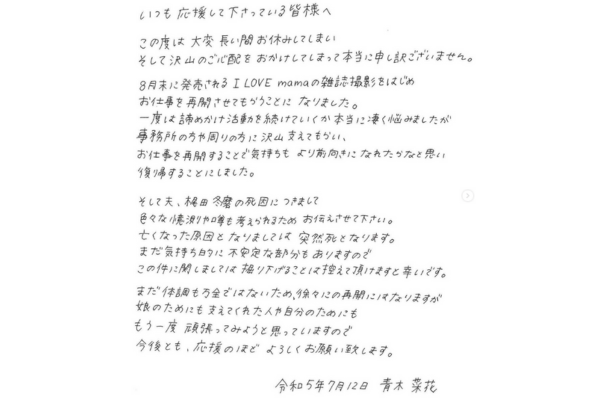 いつも応援して下さっている皆様へ
この度は大変長い間お休みしてしまい
そして沢山のご心配をおかけしてしまって本当に申し訳ございません。
8月末に発売される I LOVE mamaの雑誌撮影をはじめ
お仕事を再開させてもらうことになりました。
一度は諦めかけ活動を続けていくか本当に凄く悩みましたが
事務所の方や周りの方に沢山支えてもらい、
お仕事を再開することで気持ちもより前向きになれたらなと思い
復帰することにしました。
そして夫、梶田冬磨の死因につきまして
色々な憶測や噂も考えられるためお伝えさせて下さい。
亡くなった原因となりましては突然死となります。
まだ気持ち的に不安定な部分もありますので
この件に関しましては掘り下げることは控えて頂けますと幸いです。
まだ体調も万全ではないため、徐々にの再開にはなりますが
娘のためにも支えてくれた人や自分のためにも
もう一度頑張ってみようと思っていますので
今後とも、応援のほどよろしくお願い致します。
令和5年7月12日 青木菜花